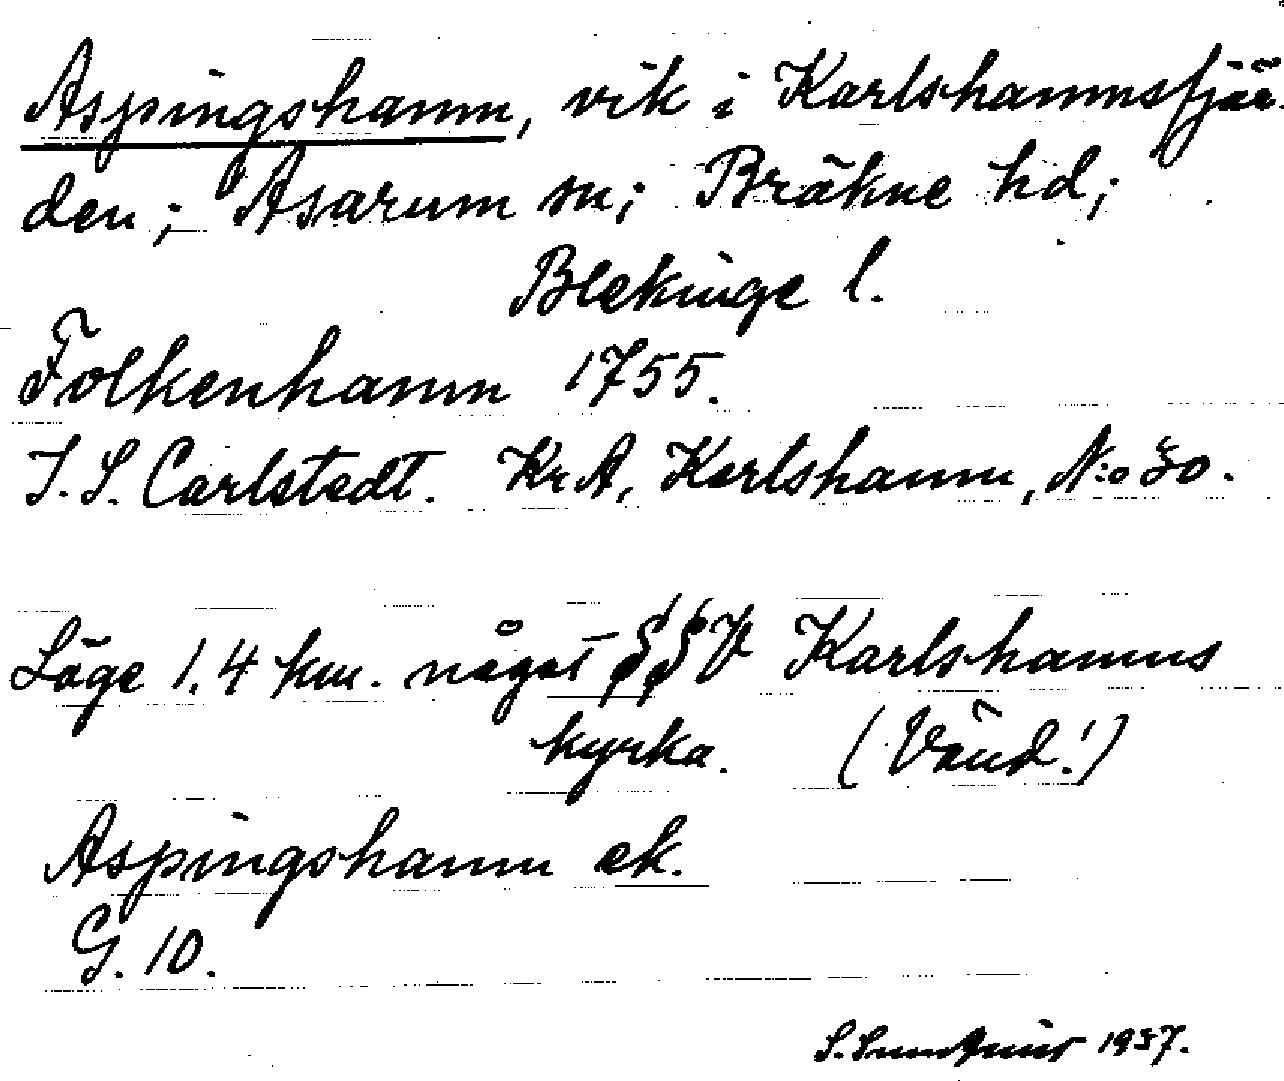 Aspingshamn, vik i Karlshamnsfjär-
den; Asarum sn; Bräkne hd;
Blekinge l.
Folkenhamn 1755.
J. S. Carlstedt. Kr A, Karlshamn, N:o 30.
Läge 1.4 km. något SSV Karlshamns
kyrka. (Vänd!)
Aspingshamn ek.
G. 10.
S. 1937.